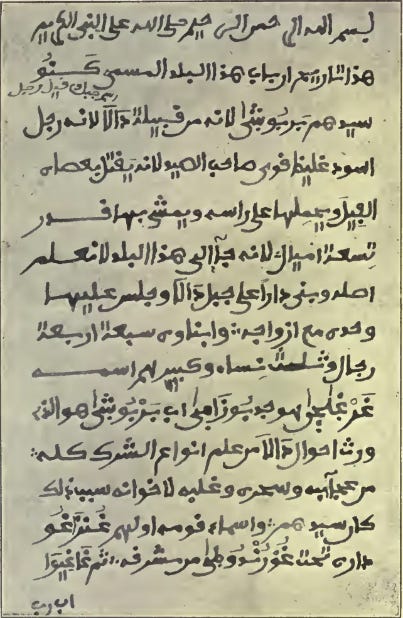 بسم الله الرحمن الرحيم صلى الله على النبي الكريم
هذا تاريخ ارباب هذا البلد المسمى كنو
سيدهم بربوشى لانه من قبيلة دالا لانه رجل
اسود غليظ قوى صاحب الصيد لانه يقتل بعصاه
الفيل ويحملها على راسه ويمشى بها قدر
تسعة اميال لانه جآ الى هذا البلد لا نعلم
اصله وبنى دارا على جبل دالا وجلس عليها
وحده مع ازواجه وابناوه سبعة اربعة
رجال وثلاث نساء وكبيرهم اسمه
هو جد بوزامى اب بربوشى هو الذى
ورث احوال دالا من علم انواع الشرك كله
من عجائبه وسحره وغلبه لاخوانه سبب ذلك
كان سيدهم واسماء قومه اولهم
داره تحت من مشرفه ثم غاغيوا
اب رب